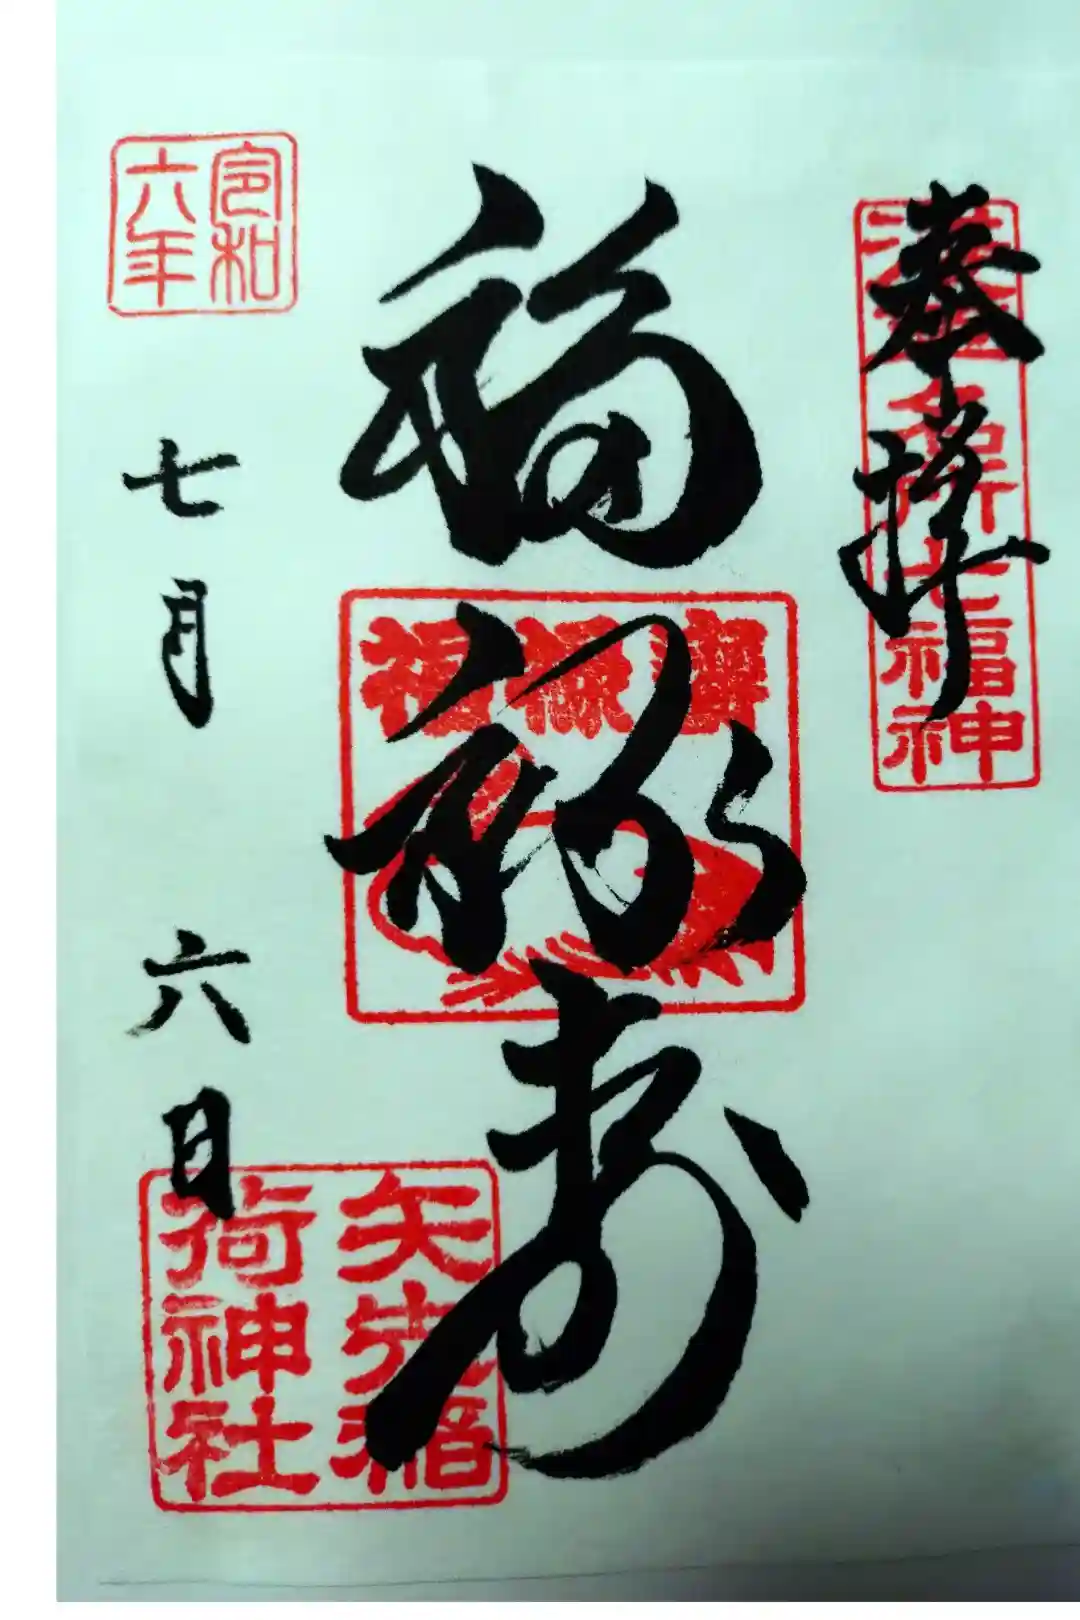 奉拝
浅草名所七福神
福禄寿
福禄寿
令和
六年
七月六日
矢先稲
荷神社